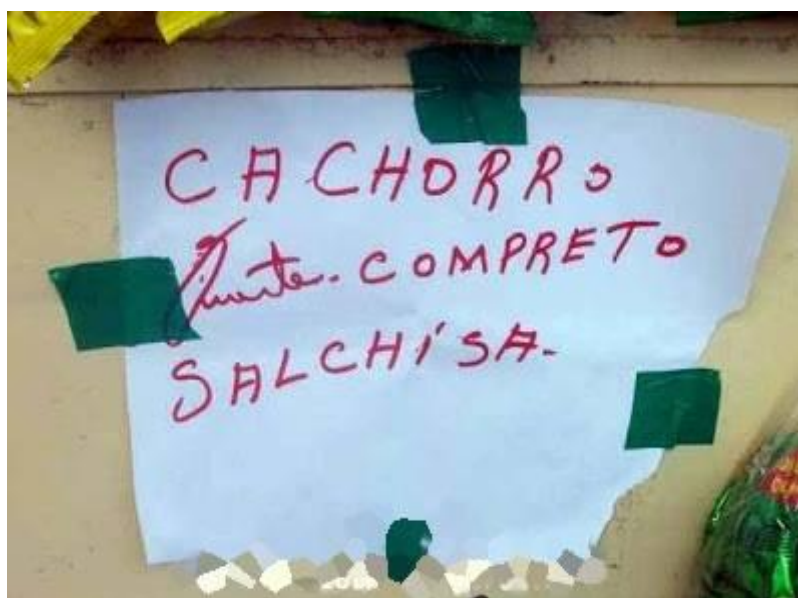 CACHORRO
Quente. COMPRETO
SALCHISA.